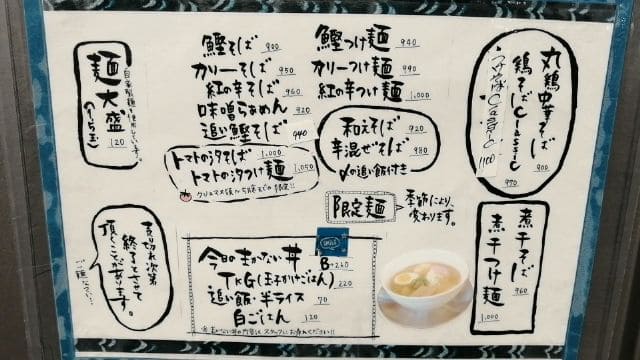 鰹そば 900
カリーそば 950
紅の辛そば 960
味噌らぁめん 920
追い鰹そば 940
トマトの汐そば 1,000
トマトの汐つけ麺 1,050
鰹つけ麺 940
カリーつけ麺 990
紅の辛つけ麺 1,000
和えそば 920
辛混ぜそば 980
〆の追い飯付き
丸鶏中華そば 900
鶏そばClassic 970
つけそばClassic 1100
自家製麺を使用しています。
麺大盛 120
限定麺
季節により、
変わります。
煮干そば 960
煮干つけ麺 1,000
売り切れ次第
終了とさせて
頂くことがあります。
ご了承ください
今日のまかない丼
SMILE
B-260
TKG(玉子かけごはん) 220
追い飯・半ライス 70
白ごはん 120